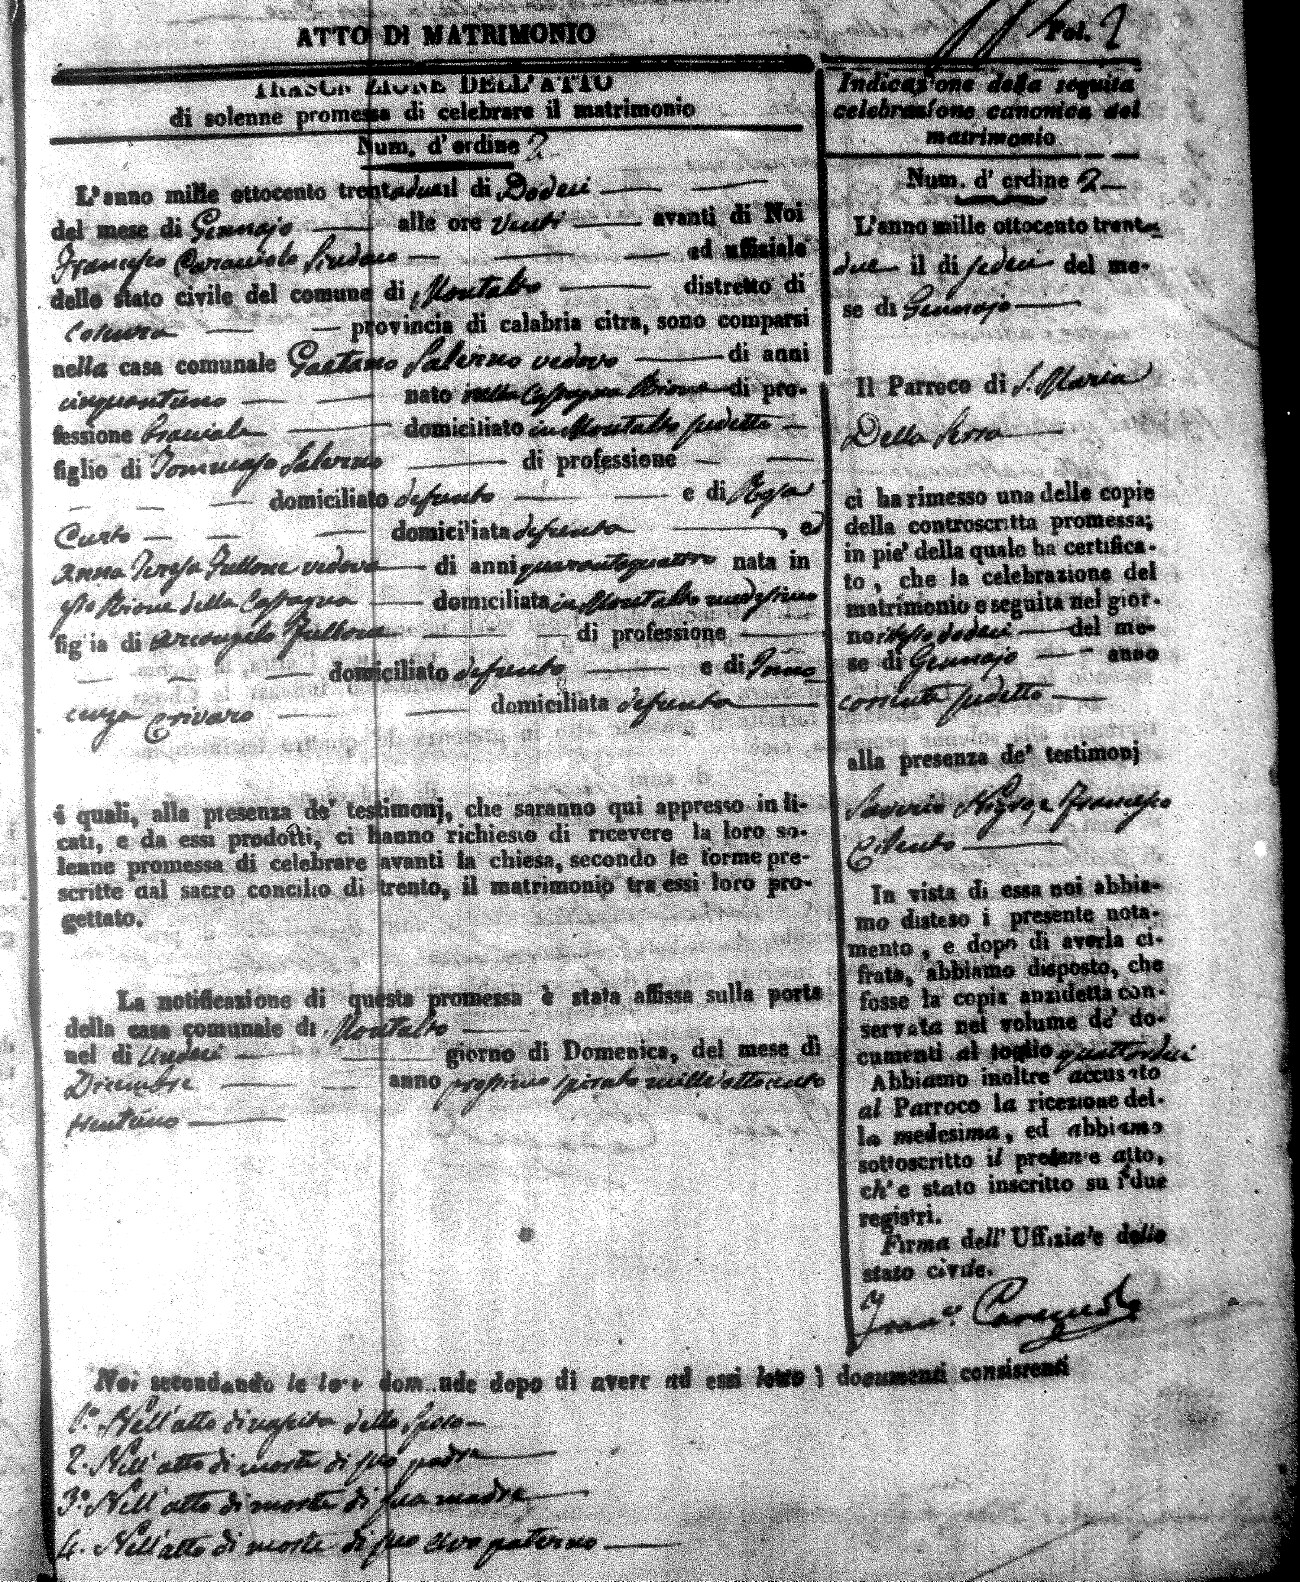 ATTO DI MATRIMONIO
Fol. 2
TRASCRIZIONE DELL'ATTO
di solenne promessa di celebrare il matrimonio
Num. d'ordine 2
L'anno mille ottocento trentadue il di Dodeci
del mese di Gennajo alle ore venti avanti di Noi
Francesco Sindaco ed uffiziale
dello stato civile del comune di Montalto distretto di
Cosenza provincia di calabria citra, sono comparsi
nella casa comunale Gaetano Salerno vedovo di anni
cinquantuno nato nella di pro-
fessione Bracciale domiciliato in Montalto sudetto
figlio di Tommaso Salerno di professione
domiciliato defunto e di Rosa
Curto domiciliata defunta, ed
Anna Teresa Fullone vedova di anni quarantaquattro nata in
Rione della domiciliata in Montalto medesimo
figlia di Arcangelo Fullone di professione
domiciliato defunto e di Inno
cenza Crivaro domiciliata defunta
i quali, alla presenza de' testimonj, che saranno qui appresso indi-
cati, e da essi prodotti, ci hanno richiesto di ricevere la loro so-
lenne promessa di celebrare avanti la chiesa, secondo le forme pre-
scritte dal sacro concilio di trento, il matrimonio tra essi loro pro-
gettato.
La notificazione di questa promessa è stata affissa sulla porta
della casa comunale di Montalto
nel di undeci giorno di Domenica, del mese di
Dicembre anno prossimo spirato mille ottocento
trentuno
Indicazione della seguita
celebrazione canonica del
matrimonio
Num. d'ordine 2
L'anno mille ottocento trenta
due il di sedeci del me-
se di Gennajo
Il Parroco di S. Maria
Della Serra
ci ha rimesso una delle copie
della controscritta promessa;
in pie' della quale ha certifica-
to, che la celebrazione del
matrimonio e seguita nel gior-
no istesso dodeci del me-
se di Gennajo anno
corrente sudetto
alla presenza de' testimonj
Saverio Nigro, e Francesco
Cilento
In vista di essa noi abbia-
mo disteso i presente nota-
mento, e dopo di averla ci-
frata, abbiamo disposto, che
fosse la copia anzidetta con-
servata nel volume de' do-
cumenti al foglio quattordici
Abbiamo inoltre accusato
al Parroco la ricezione del-
la medesima, ed abbiamo
sottoscritto il presente atto,
ch'e stato inscritto su i due
registri.
Firma dell' Uffiziale dello
stato civile.
Noi secondando le loro domande dopo di avere ad essi letto i documenti consistenti
1.° Nell'atto di nascita dello Sposo
2. Nell'atto di morte di suo padre
3.° Nell'atto di morte di sua madre
4. Nell'atto di morte di suo avo paterno